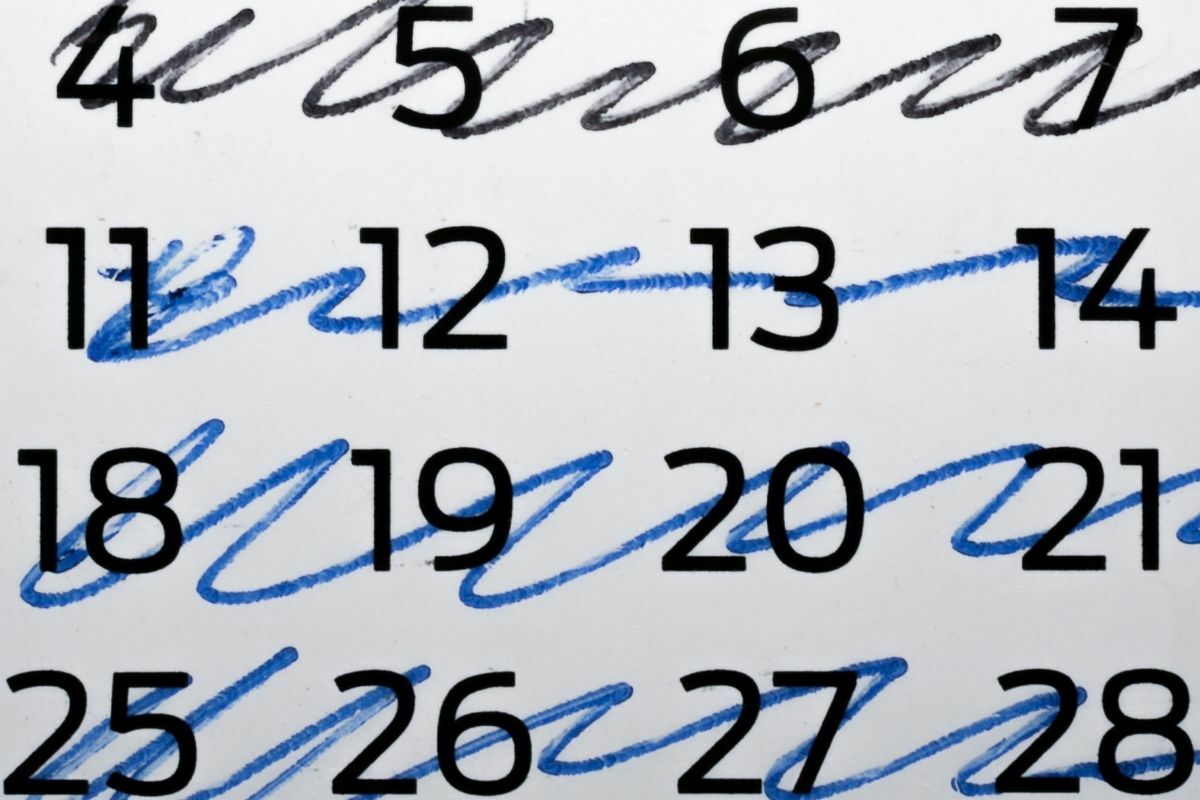 4 5 6 7
11 12 13 14
18 19 20 21
25 26 27 28